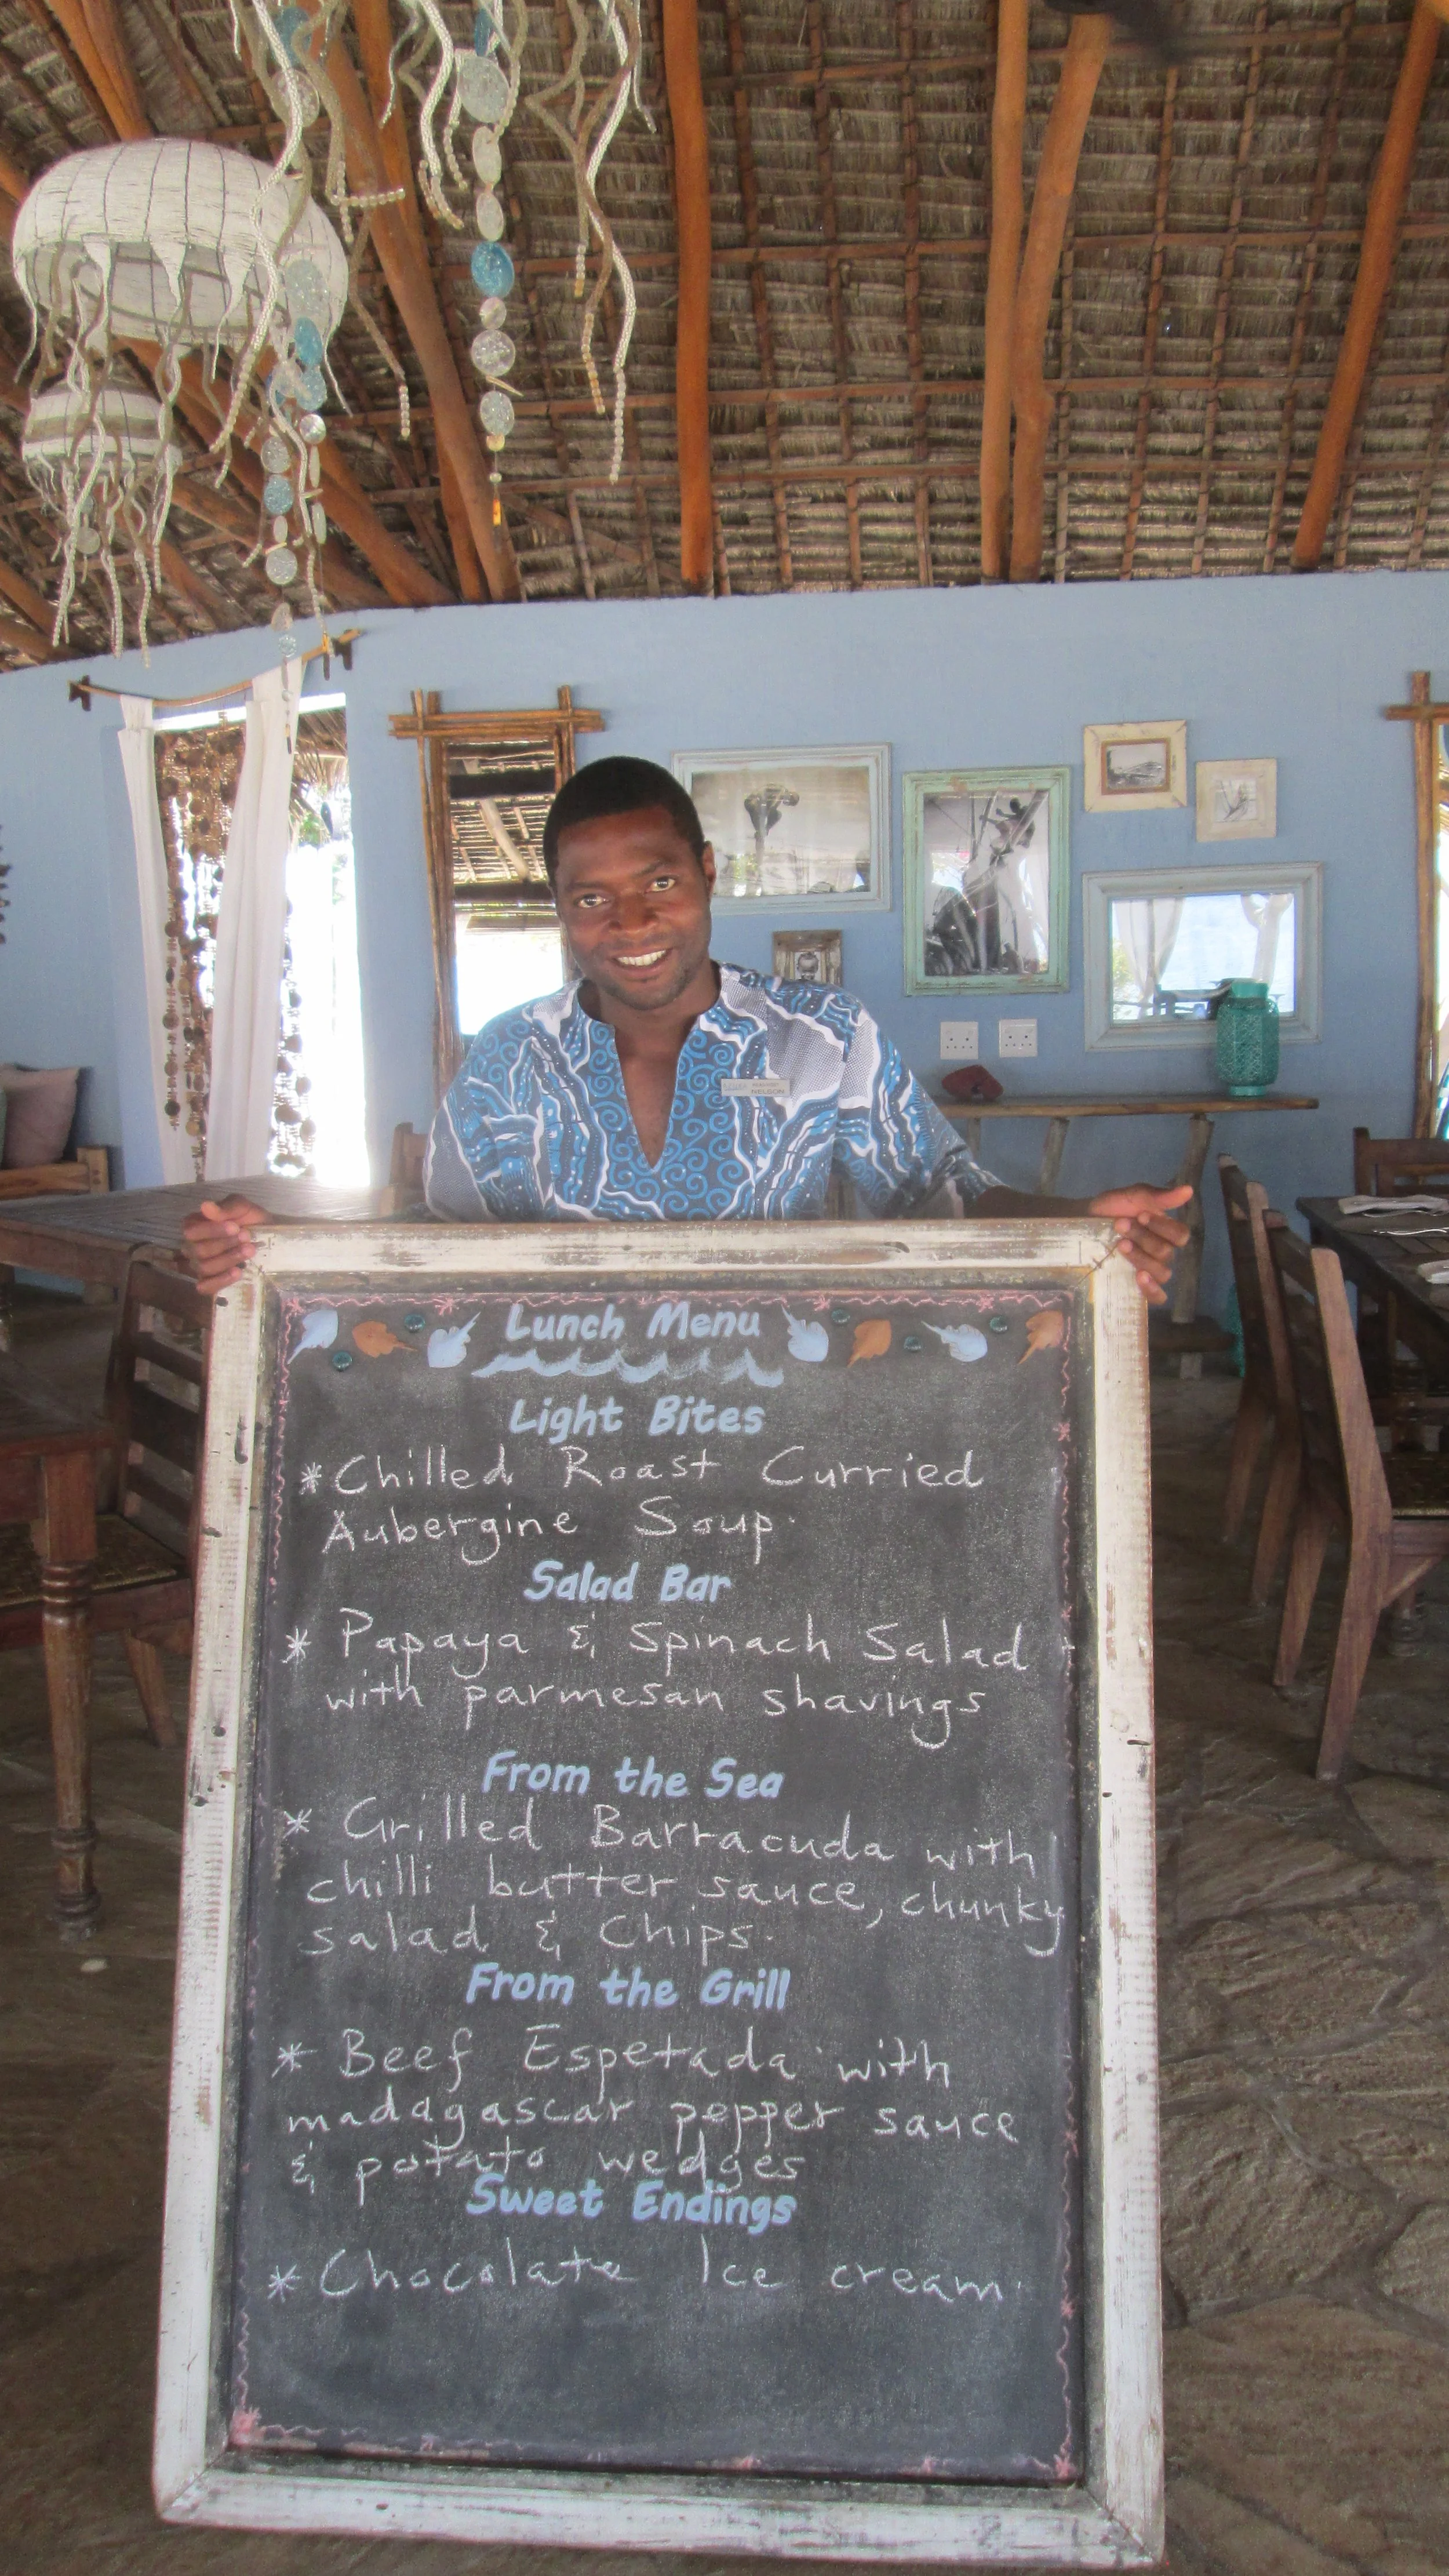 NELSON
Lunch Menu
Light Bites
* Chilled Roast Curried
Aubergine Soup.
Salad Bar
* Papaya & Spinach Salad
with parmesan shavings
From the Sea
* Grilled Barracuda with
chilli butter sauce, chunky
salad & Chips.
From the Grill
* Beef Espetada with
madagascar pepper sauce
& potato wedges
Sweet Endings
* Chocolate Ice cream.